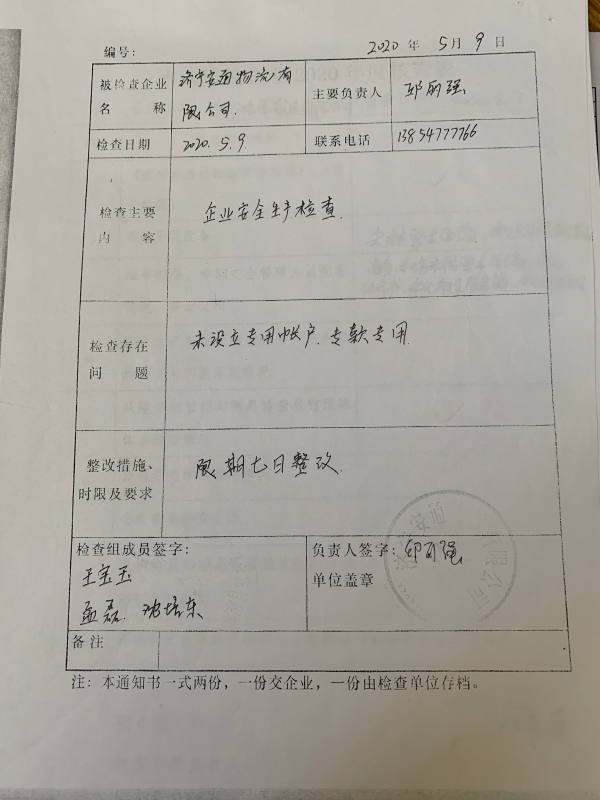 编号:
2020 年 5 月 9 日
被检查企业名称 济宁安通物流有限公司. 主要负责人 邱丽强
检查日期 2020.5.9 联系电话 13854777766
检查主要内容 企业安全生产检查.
检查存在问题 未设立专用帐户.专款专用.
整改措施、时限及要求 限期七日整改.
检查组成员签字: 负责人签字: 邱丽强
王宝玉 单位盖章
孟磊. 沈培东
备注
注: 本通知书一式两份，一份交企业，一份由检查单位存档。